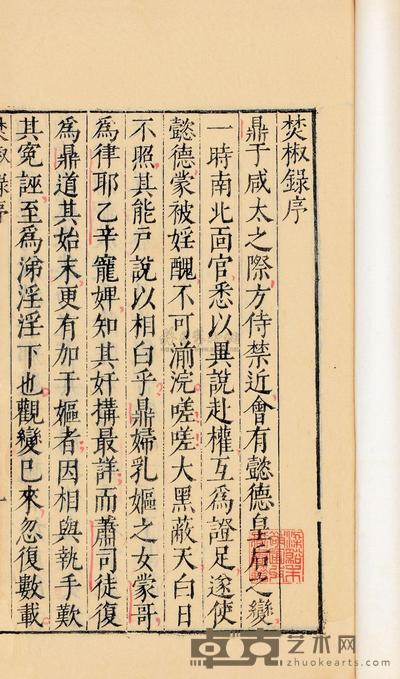 焚椒錄序
鼎于咸太之際方侍禁近會有懿德皇后之變
一時南北面官悉以異說赴權互爲證足遂使
懿德蒙被婬醜不可湔浣嗟嗟大黑蔽天白日
不照其能戶說以相白乎鼎婦乳嫗之女蒙哥
爲律耶乙辛寵婢知其奸搆最詳而蕭司徒復
爲鼎道其始末更有加于嫗者因相與執手歎
其冤誣至爲涕淫淫下也觀變已來忽復數載
焚椒錄序
一
卓克艺术网
www.zhuokearts.com